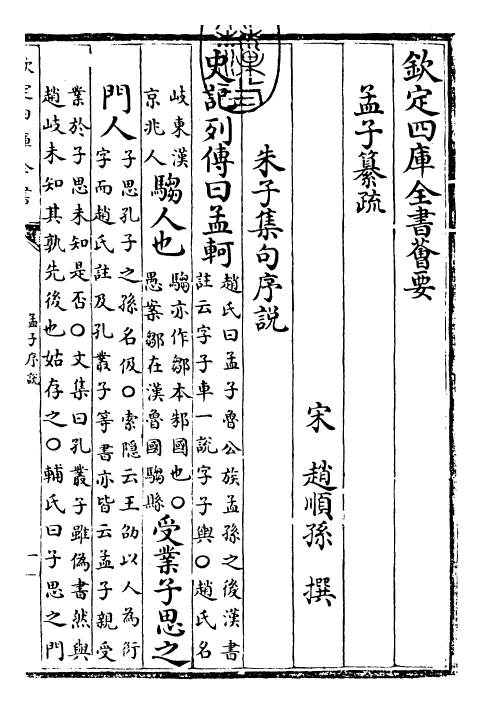 欽定四庫全書薈要
孟子纂疏
宋 趙順孫 撰
朱子集句序説
史記列傳曰孟軻
趙氏曰孟子魯公族孟孫之後漢書
註云字子車一説字子輿○趙氏名
岐東漢
京兆人
騶人也
騶亦作鄒本邾國也○
愚案鄒在漢魯國騶縣
受業子思之
門人
子思孔子之孫名伋○索隐云王劭以人為衍
字而趙氏註及孔叢子等書亦皆云孟子親受
業於子思未知是否○文集曰孔叢子雖偽書然與
趙岐未知其孰先後也姑存之○輔氏曰子思之門
欽定四庫全書
孟子序説
一